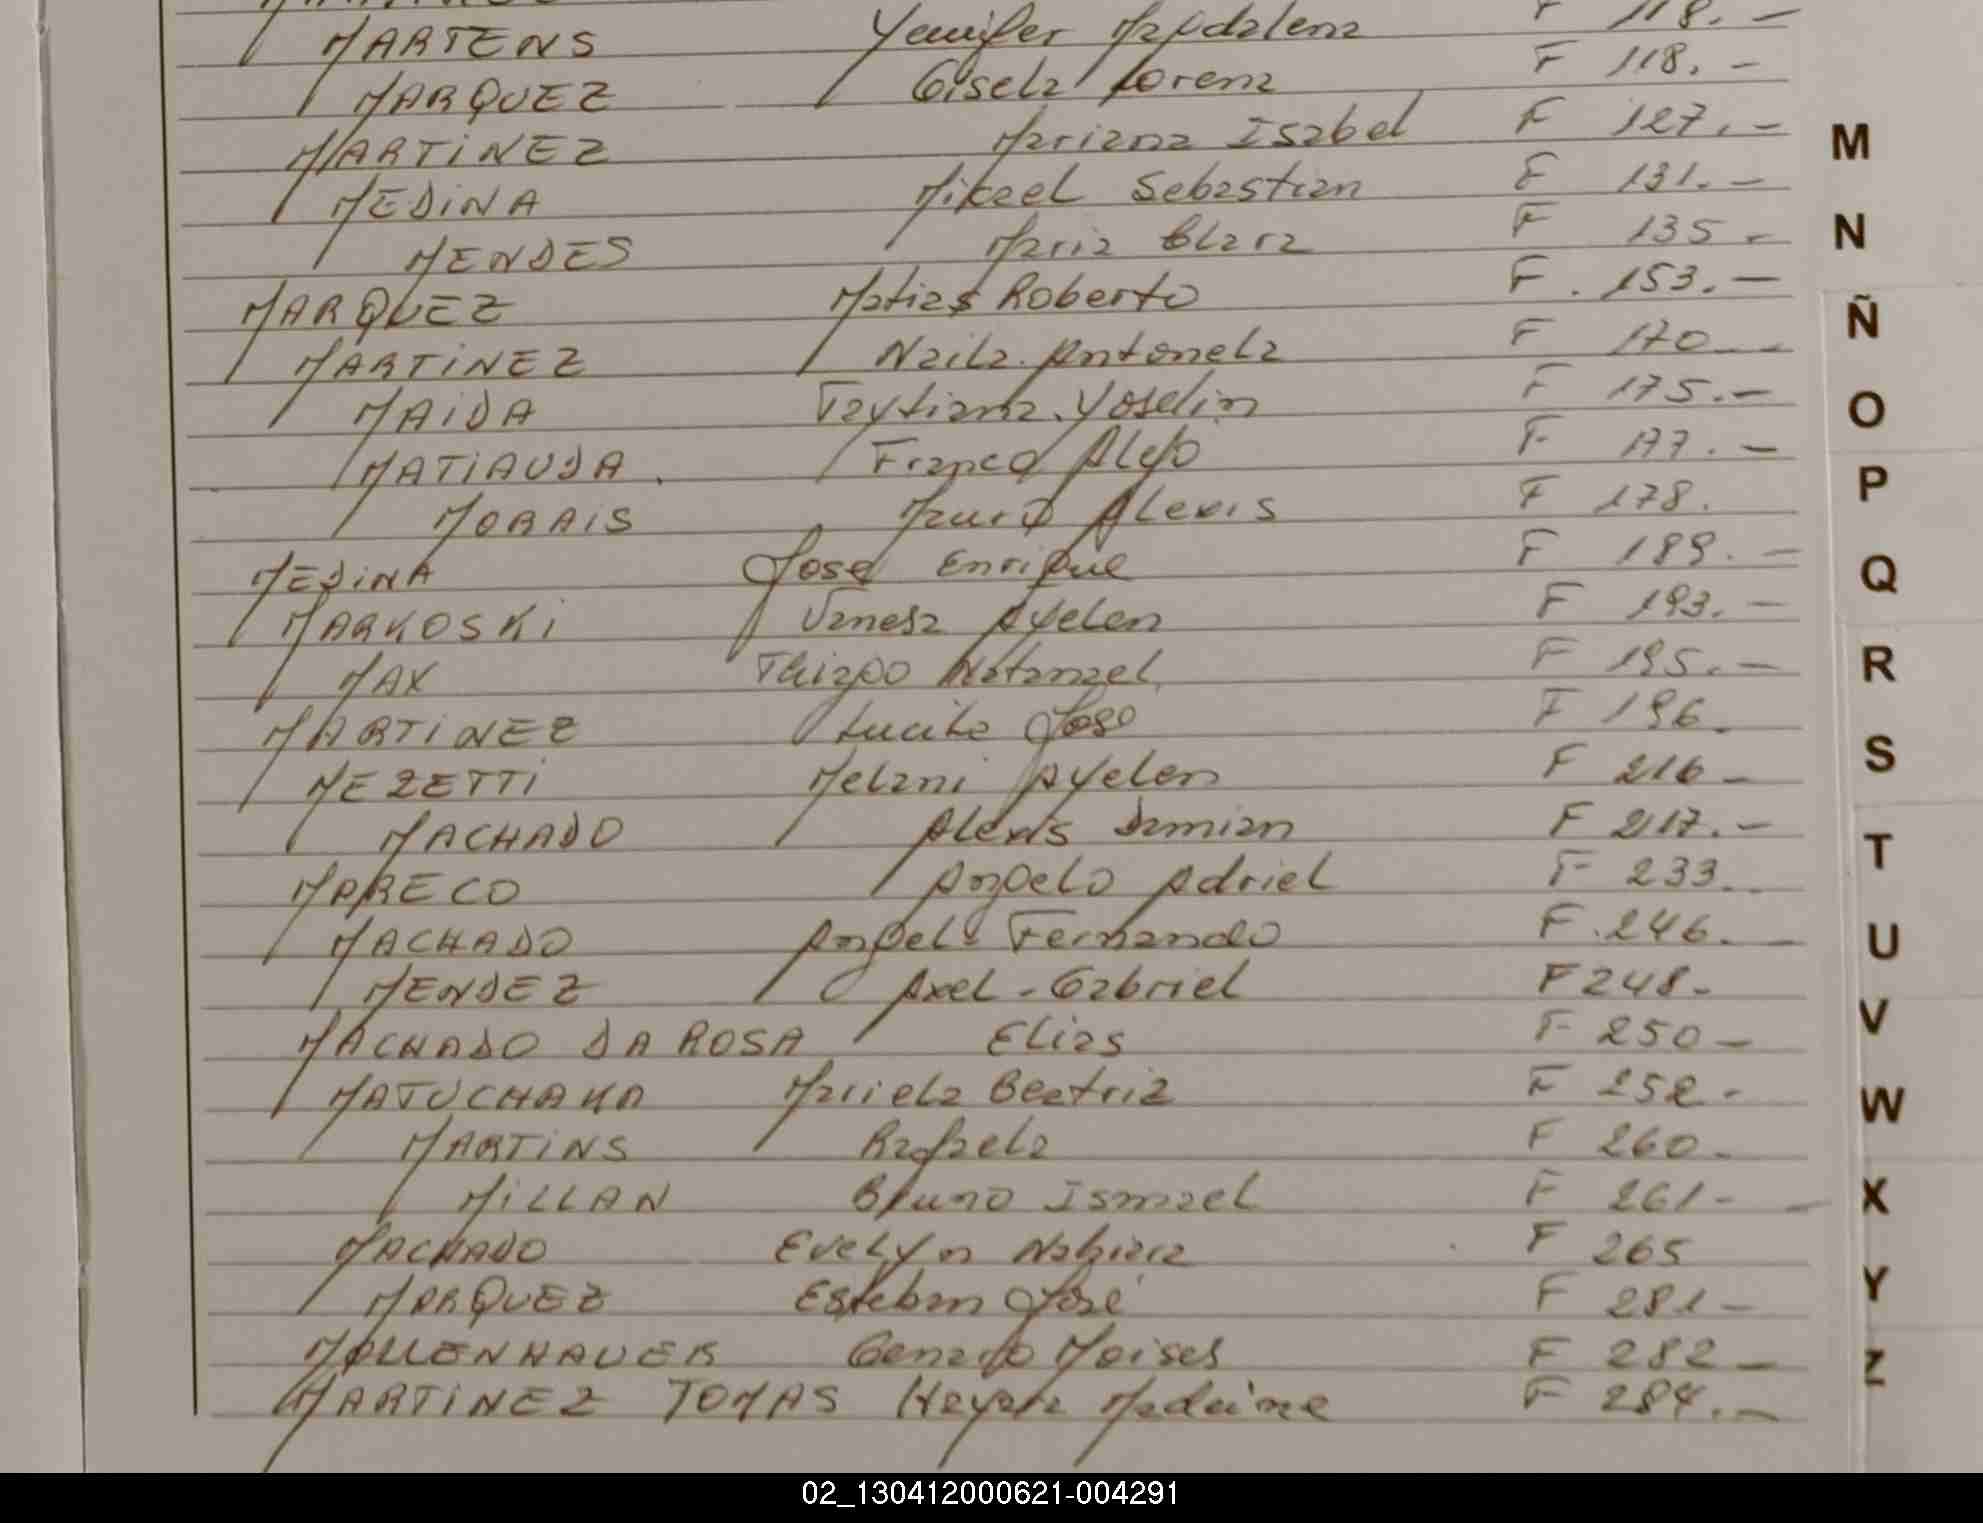 MARTENS Yenifer Magdalena F 118. -
MARQUEZ Gisela Lorena F 118. -
MARTINEZ Mariana Isabel F 127. -
MEDINA Mikael Sebastian F 131. -
MENDES Maria Clara F 135 -
MARQUEZ Matias Roberto F. 153. -
MARTINEZ Naila. Antonela F 170 -
MAIDA Taytiana. Yoselin F 175. -
MATIAUDA. Franco Alejo F 177. -
MORAIS Mauro Alexis F 178.
MEDINA Jose Enrique F 189. -
MARKOSKI Vanesa Ayelen F 193. -
MAX Thiago Natanael F 195. -
MARTINEZ Lucila F 196
MEZETTI Melani Ayelen F 216 -
MACHADO Alexis Damian F 217. -
MARECO Angelo Adriel F 233
MACHADO Angel Fernando F. 246. -
MENDEZ Axel - Gabriel F 248 -
MACHADO DA ROSA Elias F 250 -
MATUCHAKA Mariela Beatriz F 252 -
MARTINS Rafaela F 260 -
MILLAN Bruno Ismael F 261 -
MACHADO Evelyn Nahiara F 265
MARQUEZ Esteban José F 281 -
MOLLENHAUER Genaro Moises F 282 -
MARTINEZ TOMAS F 284. -
M
N
Ñ
O
P
Q
R
S
T
U
V
W
X
Y
Z
02_130412000621-004291